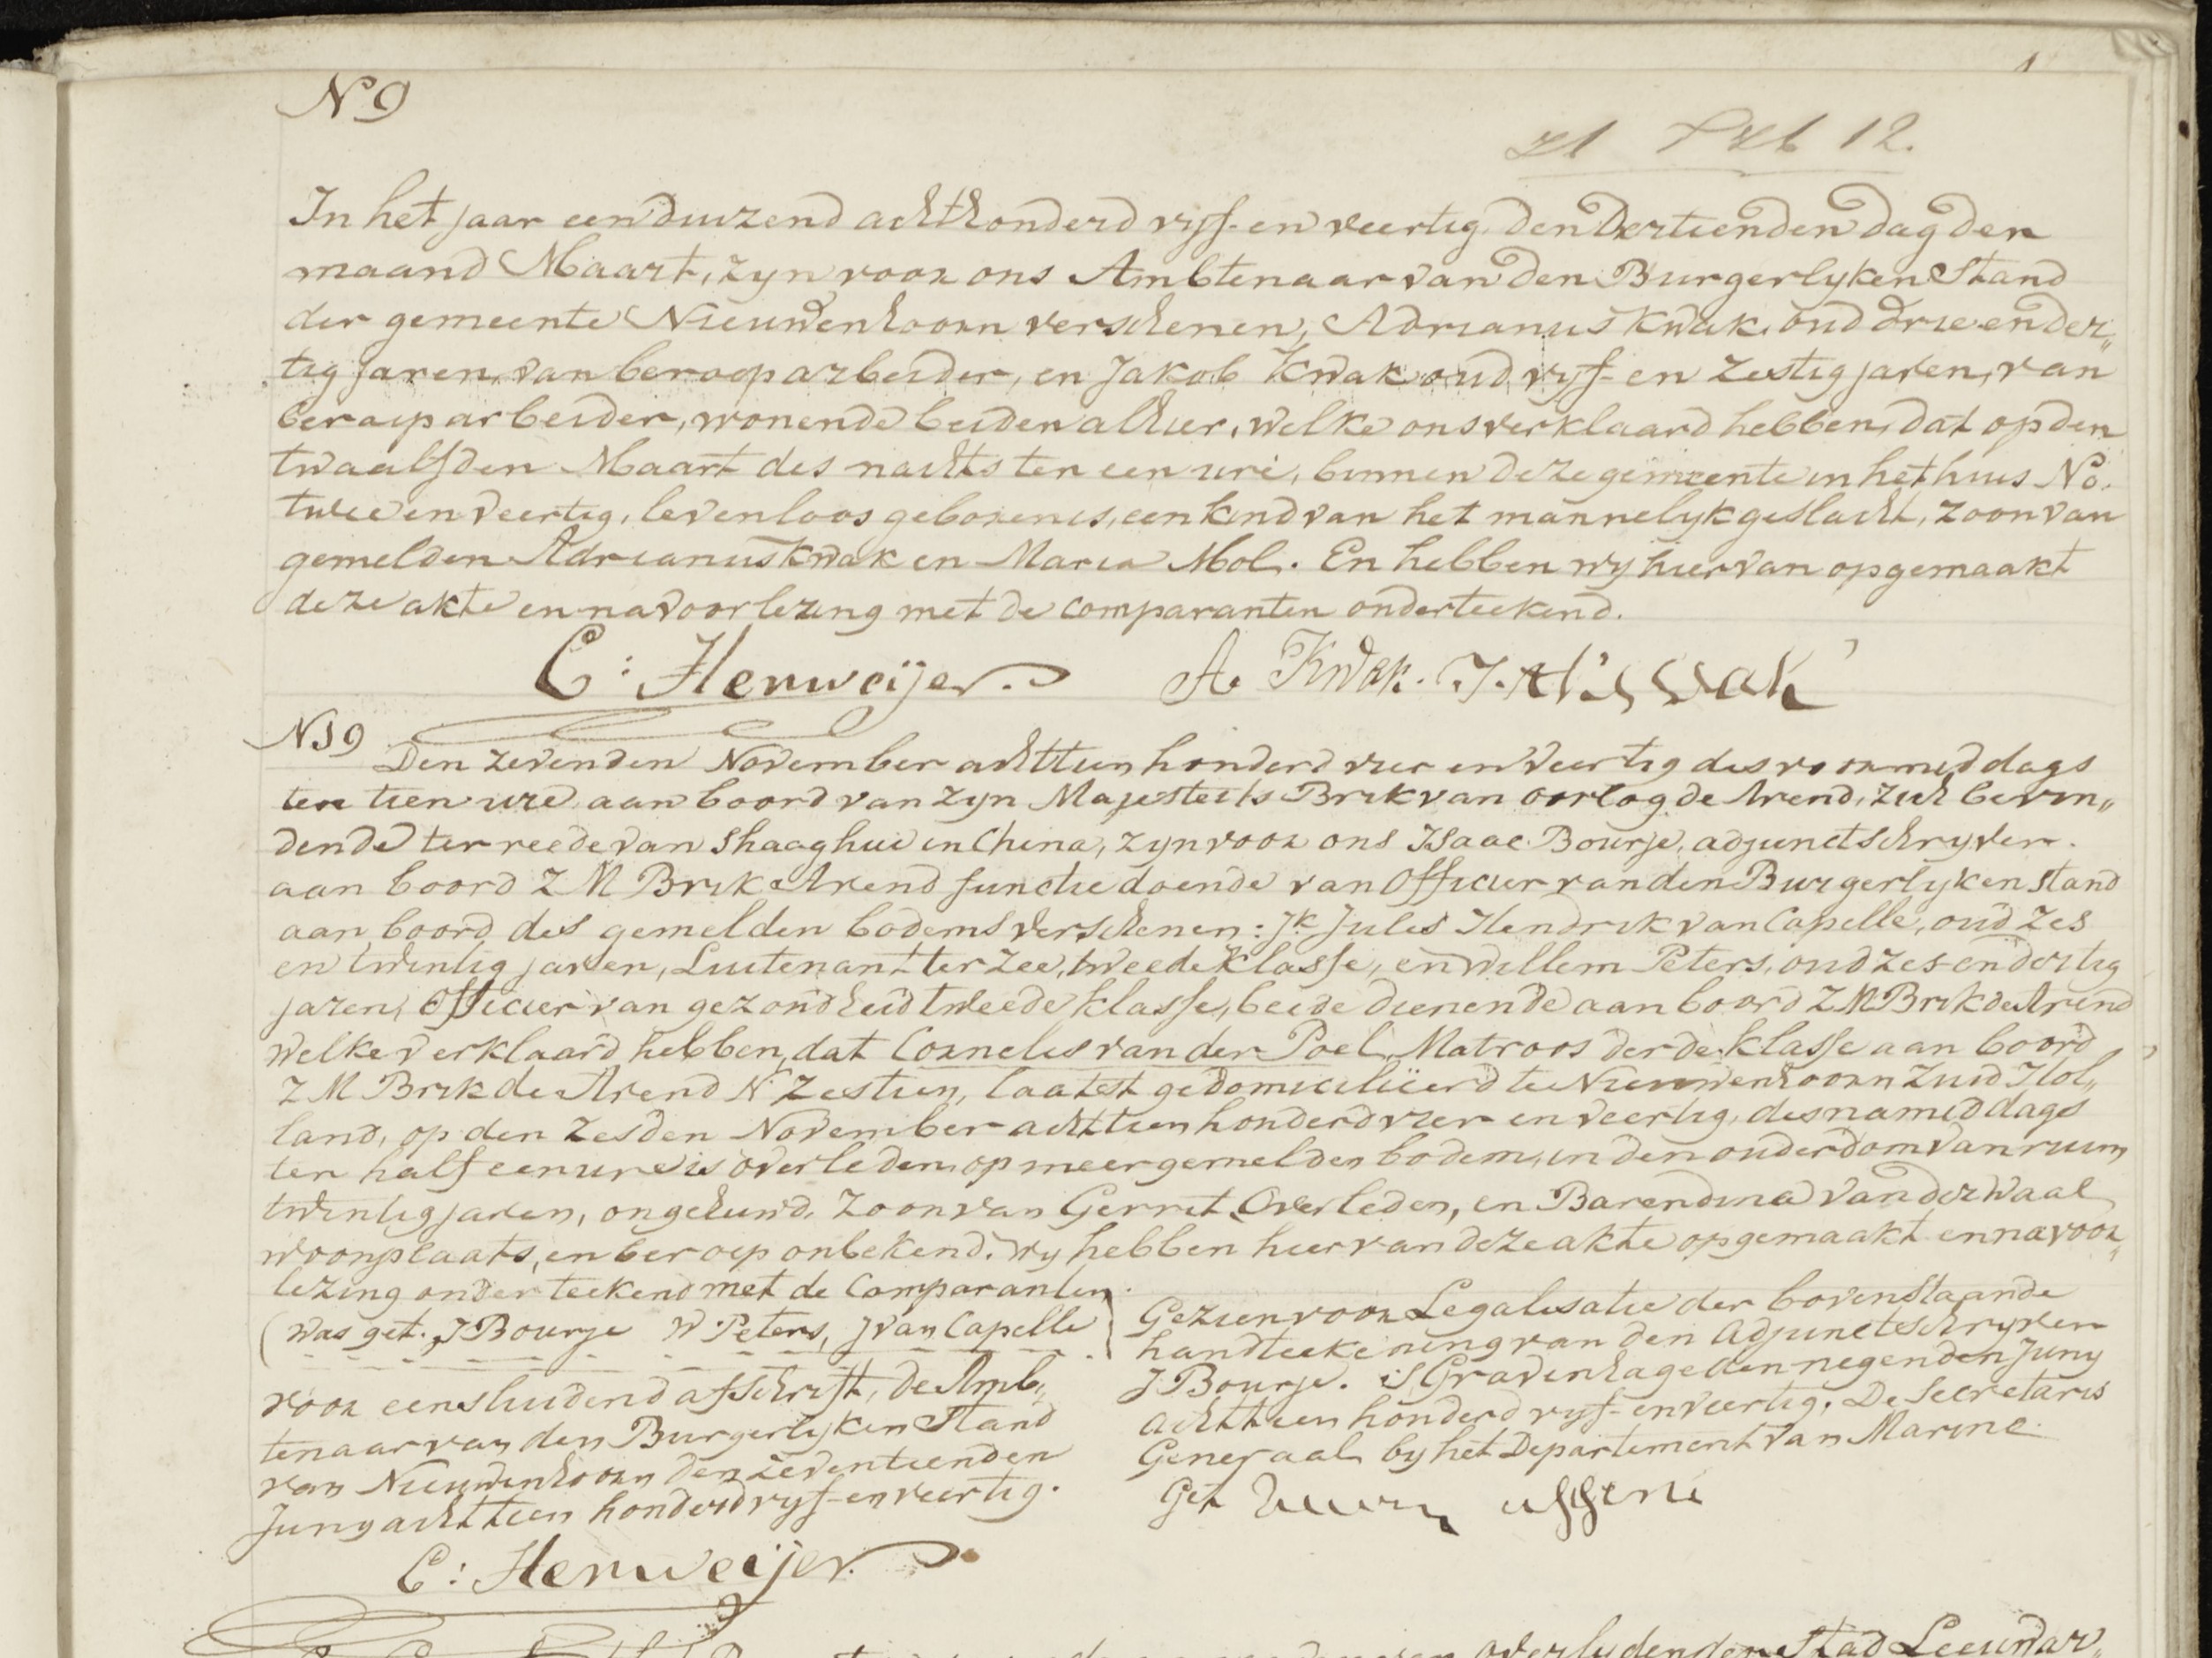 N 9
12.
In het jaar een duizend achthonderd vyf-en veertig, den Dertienden dag der
maand Maart, zyn voor ons Ambtenaar van den Burgerlyken Stand
der gemeente Nieuwenhoorn verschenen, Adrianus Kwak, oud drie en der„
tig jaren, van beroep arbeider, en Jakob Kwak oud vyf-en zestig jaren, van
beroep arbeider, wonende beiden alhier, welke ons verklaard hebben, dat op den
twaalfden Maart des nachts ten een ure, binnen deze gemeente in het huis No.
twee en veertig, levenloos geboren is, een kind van het mannelyk geslacht, zoon van
gemelden Adrianus Kwak en Maria Mol. En hebben wy hiervan opgemaakt
deze akte en na voorlezing met de comparanten onderteekend.
C: Herweijer. A. Kwak. J. Kwak
N 9
Den zevenden November achttien honderd vier en veertig des voormiddags
ten tien ure aan boord van zyn Majesteits Brik van oorlog de Arend, zich bevin„
dende ter reede van Shaaghui in China, zyn voor ons Isaac Bourje, adjunct schryver
aan boord Z M Brik Arend functie doende van Officier van den Burgerlyken stand
aan boord des gemelden bodems verschenen: Jk Jules Hendrik van Capelle, oud zes
en twintig jaren, Luitenant ter zee, tweede klasse, en Willem Peters, oud zes-en dertig
jaren, Officier van gezondheid tweede klasse, beide dienende aan boord Z M Brik de Arend
welke verklaard hebben, dat Cornelis van der Poel, Matroos derde klasse aan boord
Z M Brik de Arend N zestien, laatst gedomicilieerd te Nieuwenhoorn Zuid Hol„
land, op den zesden November achttien honderd vier en veertig, des namiddags
ten half een ure is overleden op meergemelden bodem, in den ouderdom van ruim
twintig jaren, ongehuwd, zoon van Gerrit, Overleden, en Barendina van der Waal
woonplaats, en beroep onbekend. Wy hebben hiervan deze akte opgemaakt en na voor„
lezing onderteekend met de Comparanten.
(was get. J Bourje W Peters, J van Capelle)
voor eensluidend afschrift, de Amb„
tenaar van den Burgerlyken Stand
van Nieuwenhoorn den zeventienden
Juny achttien honderd vyf-en veertig.
C: Herweijer.
Gezien voor Legalisatie der bovenstaande
handteekening van den Adjunctschryver
J Bourje. 's Gravenhage den negenden Juny
achttien honderd vyf-en veertig. De Secretaris
Generaal by het Departement van Marine.
Get
overlyden der Stad Leeuwar„